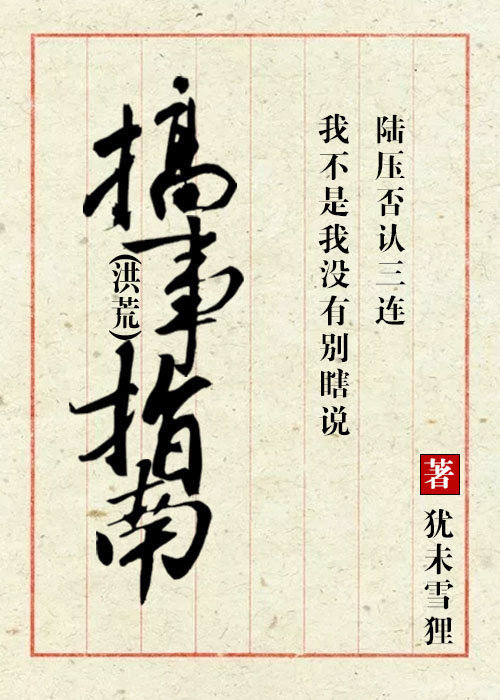 陆压否认三连
我不是我没有别瞎说
搞事指南
(洪荒)
著
犹未雪狸